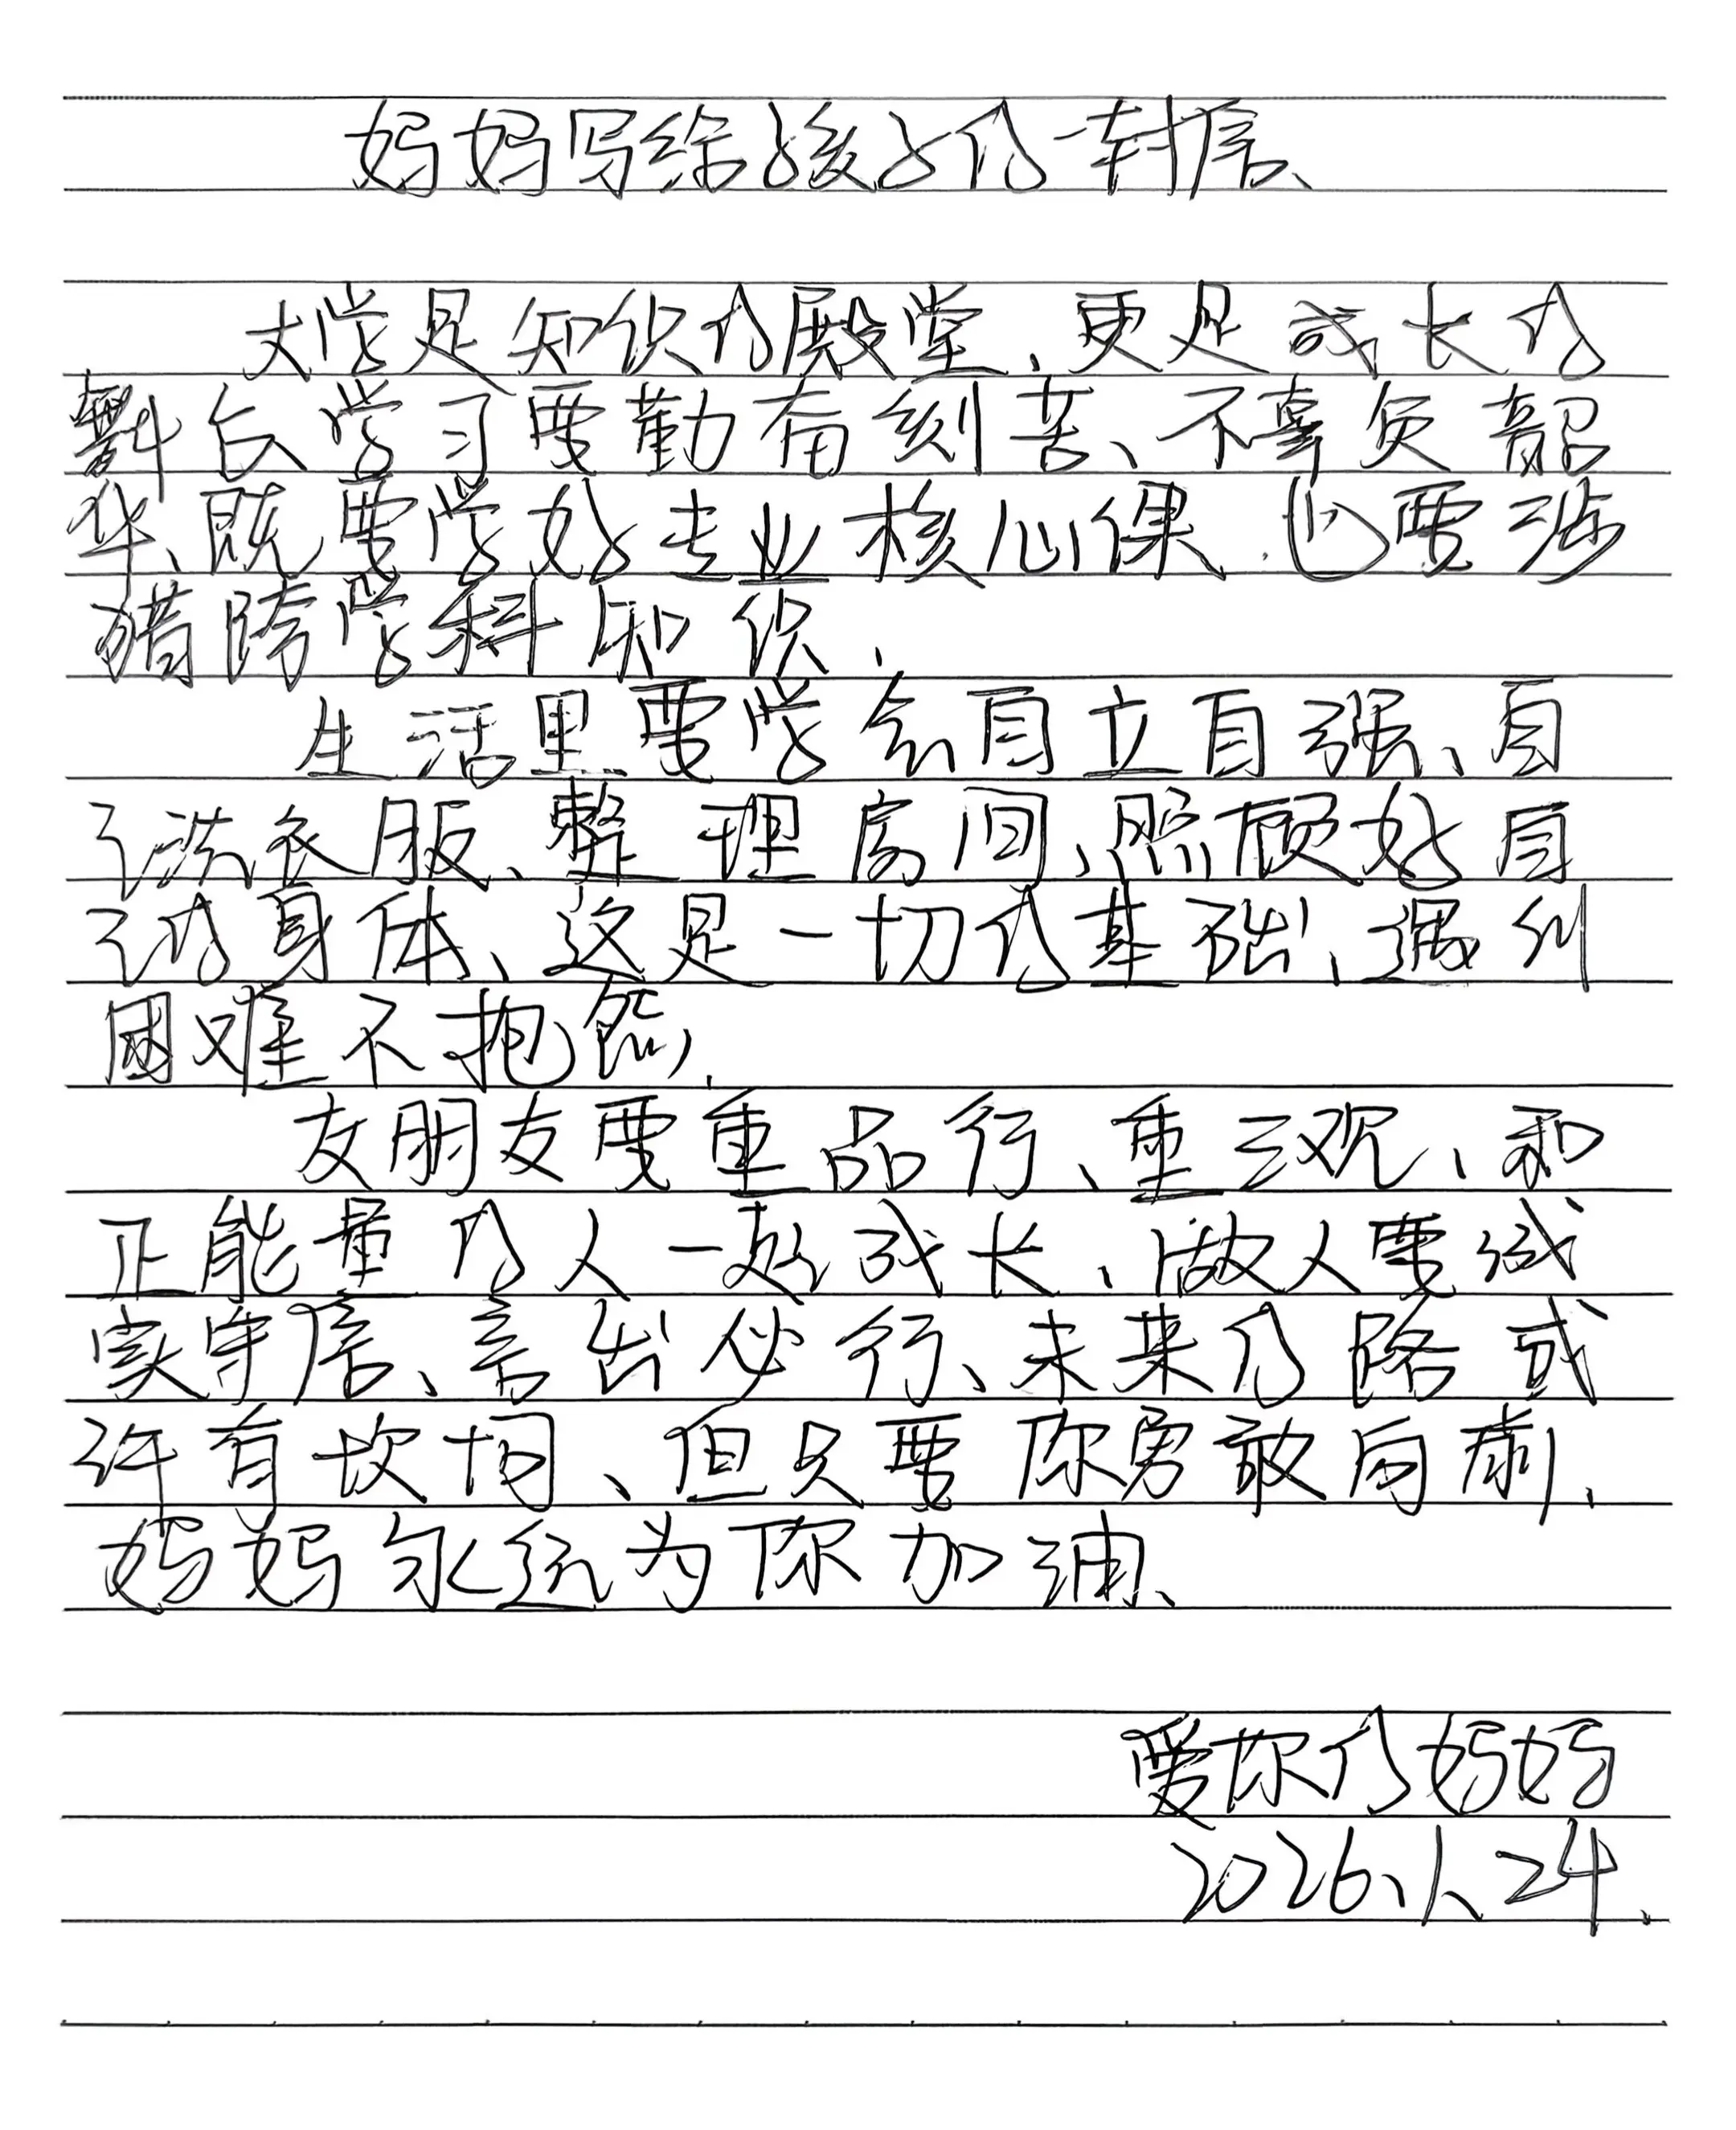 妈妈写给孩子的一封信、
大学是知识的殿堂、更是成长的
舞台学习要勤奋刻苦、不辜负韶
华、既要学好专业核心课、也要涉
猎跨学科知识、
生活里要学会自立自强、自
己洗衣服、整理房间、照顾好自
己的身体、这是一切的基础、遇到
困难不抱怨、
友朋友要重品行、重三观、和
正能量的人一起成长、做人要诚
实守信、言出必行、未来的路或
许有坎坷、但只要你勇敢向前、
妈妈永远为你加油、
爱你的妈妈
2026、1、24、